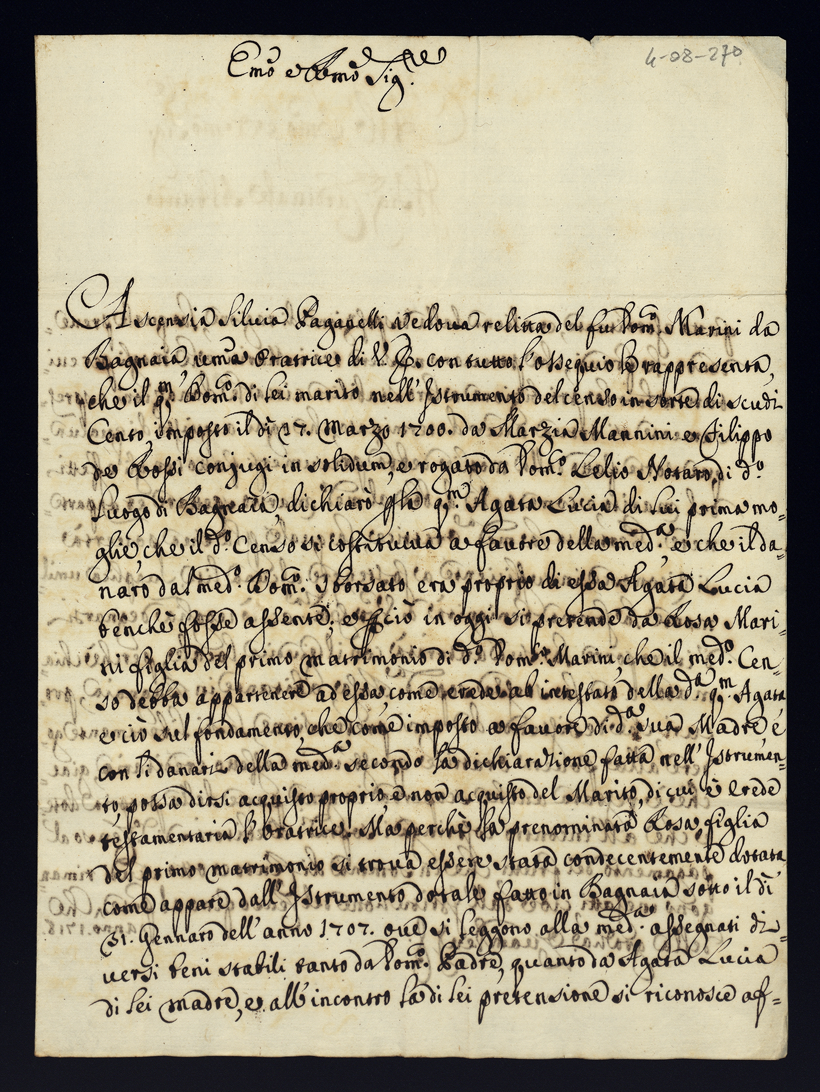 4-08-270
Emo e Rmo Sig.re
Ascensia Silvia Paganelli vedova relitta del fu Dom.co Marini da
Bagnaia um.a Oratrice di V. E. con tutto l'ossequio le rappresenta,
che il q.m Dom.co di lei marito nell'Istrumento del censo in sorte di scudi
Cento, imposto il dì 17. Marzo 1700. da Marzia Mannini e Filippo
de Rossi conjugi in solidum, e rogato da Dom.o Lelio Notaro di d.o
luogo di Bagnaia, dichiarò che q.m Agata Lucia di lui prima mo=
glie, che il d.o Censo si costituiva a favore della med.a, e che il da=
naro dal med.o Dom.co sborsato era proprio di essa Agata Lucia
benchè fosse assente; e perciò in oggi si pretende da Rosa Mari=
ni figlia del primo matrimonio di d.o Dom.co Marini che il med.o Cen=
so debba appartenere ad essa come erede ab intestato della d.a q.m Agata
e ciò sul fondamento, che come imposto a favore di d.a sua Madre e
con li danari della med.a secondo la dichiarazione fatta nell'Istrumen=
to possa dirsi acquisto proprio, e non acquisto del Marito, di cui è Erede
testamentaria l'Oratrice. Ma perchè la prenominata Rosa figlia
del primo matrimonio si trova essere stata condecentemente dotata
come appare dall'Istrumento dotale fatto in Bagnaia sotto il dì
31. Gennaro dell'anno 1707. ove si leggono alla med.a assegnati di=
versi beni stabili tanto da Dom.co Padre, quanto da Agata Lucia
di lei madre, e all'incontro la di lei pretensione si riconosce af=